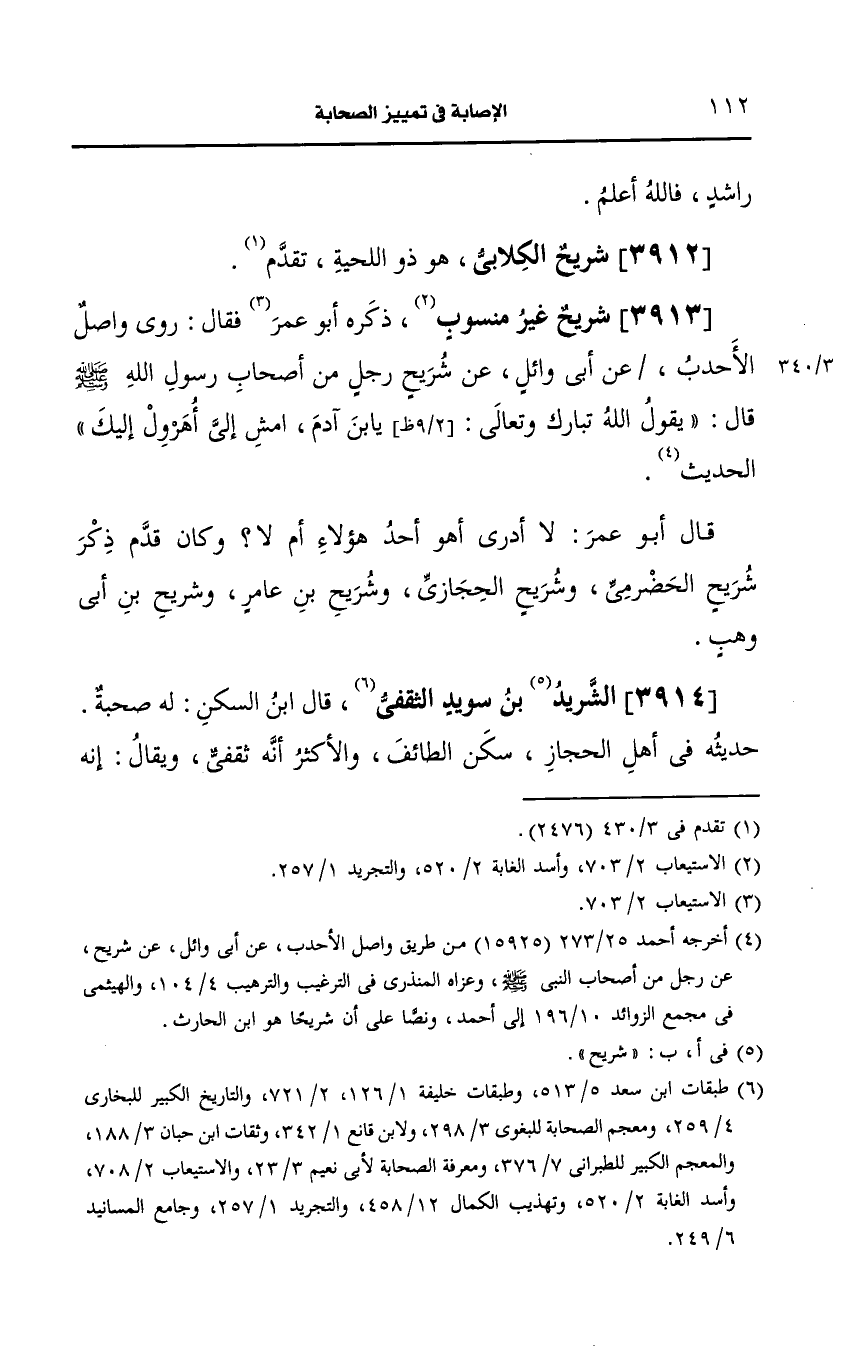 ١١٢ الإصابة فى تمييز الصحابة
راشدٍ ، فاللهُ أعلمُ .
[٣٩١٢] شريحٌ الكِلابىُّ ، هو ذو اللحيةِ ، تقدَّم(١) .
[٣٩١٣] شريحٌ غيرُ منسوبٍ(٢) ، ذكَره أبو عمرَ(٣) فقال : روى واصلٌ
٣٤٠/٣ الأَحدبُ ، / عن أبى وائلٍ ، عن شُرَيحٍ رجلٍ من أصحابِ رسولِ اللهِ ﷺ
قال : « يقولُ اللهُ تبارك وتعالَى : [٩/٢ظ] يابنَ آدمَ ، امشِ إلىَّ أُهَرْوِلْ إليكَ »
الحديث(٤) .
قال أبو عمرَ : لا أدرى أهو أحدُ هؤلاءِ أم لا ؟ وكان قدَّم ذِكْرَ
شُرَيحٍ الحَضْرمِىِّ ، وشُرَيحٍ الحِجَازىِّ ، وشُرَيحِ بنِ عامرٍ ، وشريحِ بنِ أبى
وهبٍ .
[٣٩١٤] الشَّريدُ(٥) بنُ سويدٍ الثقفىُّ(٦) ، قال ابنُ السكنِ : له صحبةٌ .
حديثُه فى أهلِ الحجازِ ، سكَن الطائفَ ، والأكثرُ أنَّه ثقفىٌّ ، ويقالُ : إنه
(١) تقدم فى ٤٣٠/٣ (٢٤٧٦) .
(٢) الاستيعاب ٢/ ٧٠٣، وأسد الغابة ٢/ ٥٢٠، والتجريد ١/ ٢٥٧.
(٣) الاستيعاب ٢/ ٧٠٣.
(٤) أخرجه أحمد ٢٧٣/٢٥ (١٥٩٢٥) من طريق واصل الأحدب ، عن أبى وائل ، عن شريح ،
عن رجل من أصحاب النبى ﷺ ، وعزاه المنذرى فى الترغيب والترهيب ٤/ ١٠٤، والهيثمى
فى مجمع الزوائد ١٩٦/١٠ إلى أحمد ، ونصَّا على أن شريحًا هو ابن الحارث .
(٥) فى أ ، ب : « شريح » .
(٦) طبقات ابن سعد ٥١٣/٥، وطبقات خليفة ١٢٦/١، ٢/ ٧٢١، والتاريخ الكبير للبخارى
٤/ ٢٥٩، ومعجم الصحابة للبغوى ٣/ ٢٩٨، ولابن قانع ١/ ٣٤٢، وثقات ابن حبان ٣/ ١٨٨،
والمعجم الكبير للطبرانى ٧/ ٣٧٦، ومعرفة الصحابة لأبى نعيم ٣/ ٢٣، والاستيعاب ٢/ ٧٠٨،
وأسد الغابة ٢/ ٥٢٠، وتهذيب الكمال ١٢/ ٤٥٨، والتجريد ١/ ٢٥٧، وجامع المسانيد
٦/ ٢٤٩.